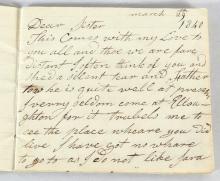 march 29
Dear Sister 1840
This Comes with my Love to
you all and thoe we are fare
distant I often think of you and
shed a silent tear and
he is quite well at
I verry seldom come at
for it troubels me to
see the place wheare you did
live I have got no whare
to go to as I do not like